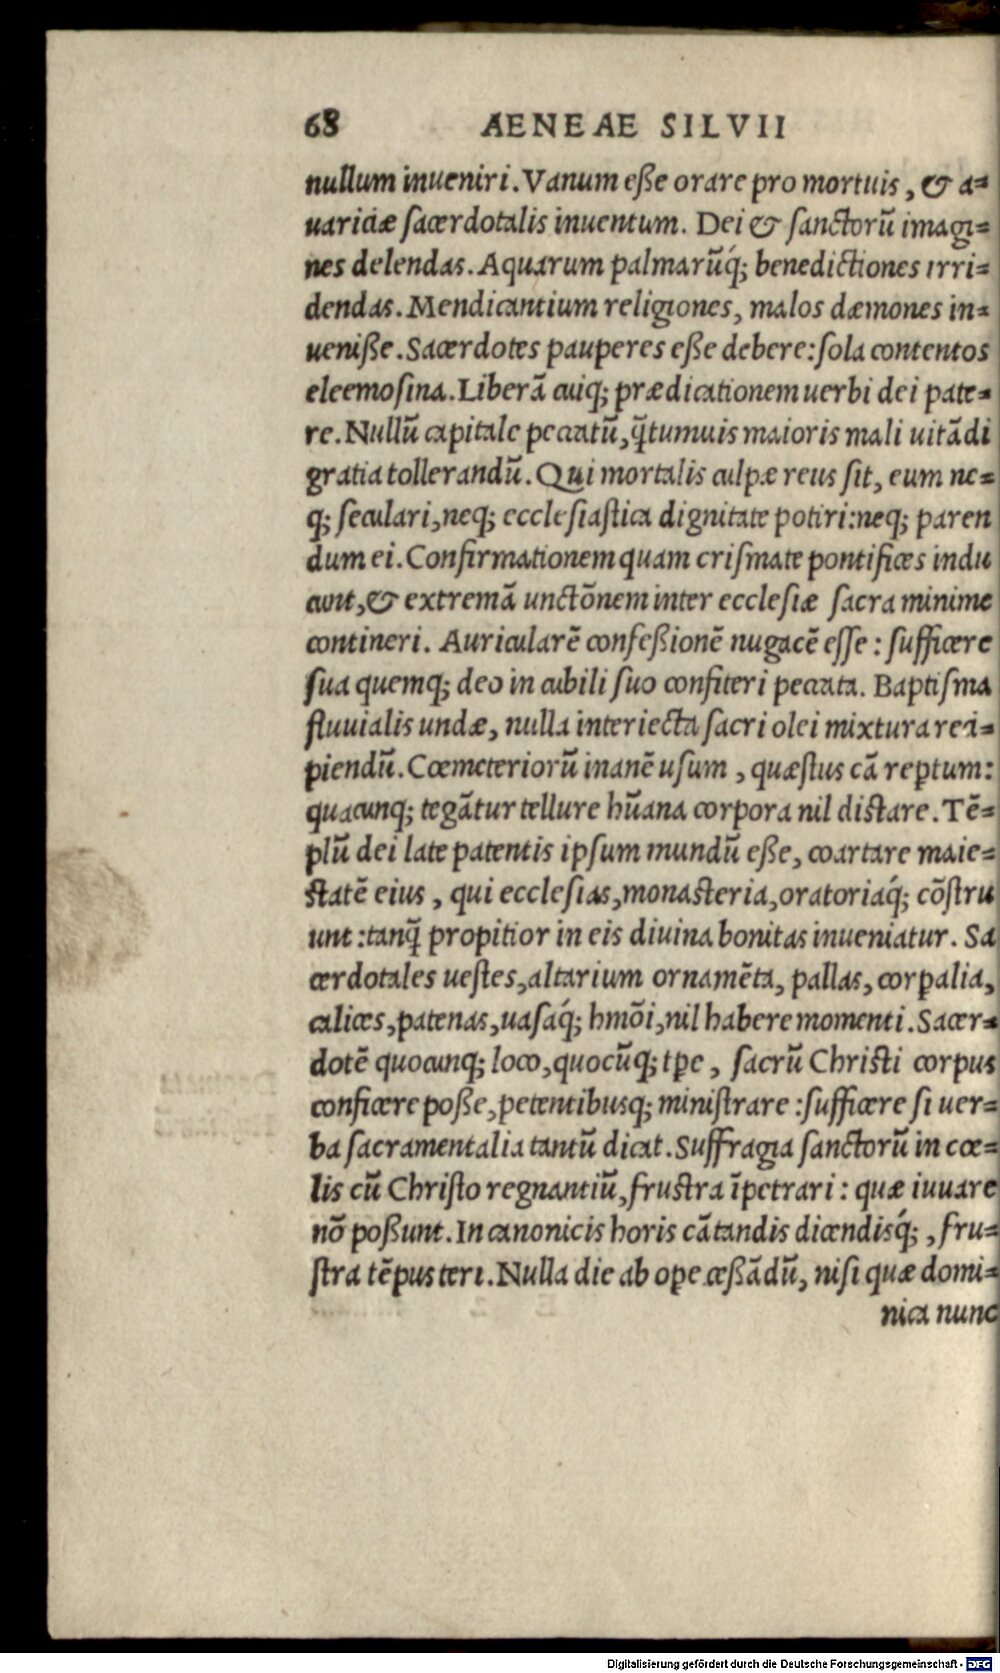 68 AENEAE SILVII
nullum inueniri. Vanum eſße orare pro mortuis, & a-
uariciæ ſacerdotalis inuentum. Dei & ſanctorũ imagi-
nes delendas. Aquarum palmarũq́; benedictiones irri-
dendas. Mendicantium religiones, malos dæmones in-
ueniſße. Sacerdotes pauperes eſße debere: ſola contentos
eleemoſina. Liberã cuiq; prædicationem uerbi dei pate-
re. Nullũ capitale peccatũ, q̃tumuis maioris mali uitãdi
gratia tollerandũ. Qui mortalis culpæ reus ſit, eum ne-
q; ſeculari, neq; eccleſiaſtica dignitate potiri: neq; paren
dum ei. Confirmationem quam criſmate pontifices indu
cunt, & extremã unctõnem inter eccleſiæ ſacra minime
contineri. Auricularẽ confeſßionẽ nugacẽ eſſe: ſufficere
ſua quemq; deo in cubili ſuo confiteri peccata. Baptiſma
fluuialis undæ, nulla interiecta ſacri olei mixtura reci-
piendũ. Cœmeteriorũ inanẽ uſum, quæſtus cã reꝑtum:
quacunq; tegãtur tellure hũana corpora nil diſtare. Tẽ-
plũ dei late patentis ipſum mundũ eſße, coartare maie-
ſtatẽ eius, qui eccleſias, monaſteria, oratoriaq́; cõſtru
unt: tanq̃ propitior in eis diuina bonitas inueniatur. Sa
cerdotales ueſtes, altarium ornamẽta, pallas, corꝑalia,
calices, patenas, uaſaq́; hmõi, nil habere momenti. Sacer-
dotẽ quocunq; loco, quocũq; tꝑe, ſacrũ Chriſti corpus
conficere poſße, petentibusq; miniſtrare: ſufficere ſi uer-
ba ſacramentalia tantũ dicat. Suffragia ſanctorũ in cœ-
lis cũ Chriſto regnantiũ, fruſtra ĩpetrari: quæ iuuare
nõ poſßunt. In canonicis horis cãtandis dicendisq́;, fru-
ſtra tẽpus teri. Nulla die ab oꝑe ceſßãdũ, niſi quæ domi-
nica nunc
Digitalisierung gefördert durch die Deutsche Forschungsgemeinschaft - DFG